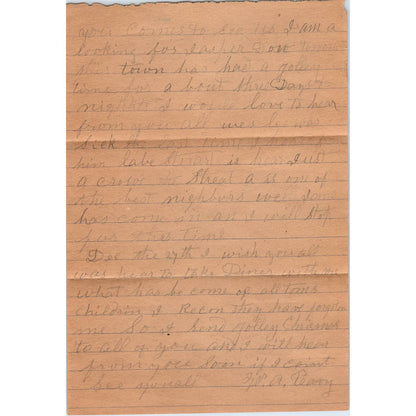 you comes to see us I am a
looking for Jasper Dow
this town has had a jolley
time for a bout three Days &
nights I would love to hear
from you all wes G was
sick the last time I heard from
him labe Stuart is hear Just
a cross the Streat & is one of
the best neighbors we
has come in an I will stop
for this time
Dec the 27th I wish you all
was hear to take Diner with us
what has be come of all toms
children I Recon they hav forgotten
me So I Send jolley Chrismas
to all of you and I will hear
from you Soon if I caint
See you all A. Peavy